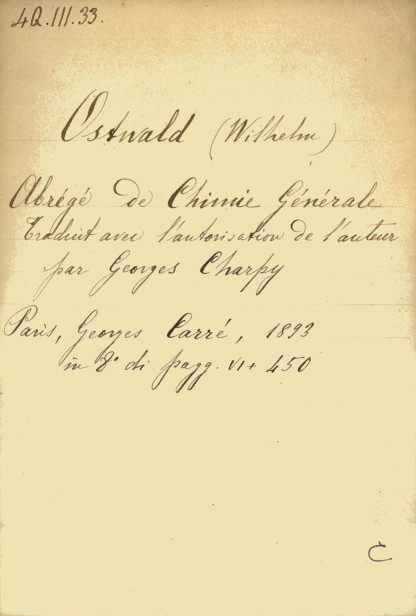 4Q.III.33.
Ostwald (Wilhelm)
Abrégé de Chimie Générale
Traduit avec l'autorisation de l'auteur
par Georges Charpy
Paris, Georges Carré, 1893
in 8° di pagg. VI+ 450